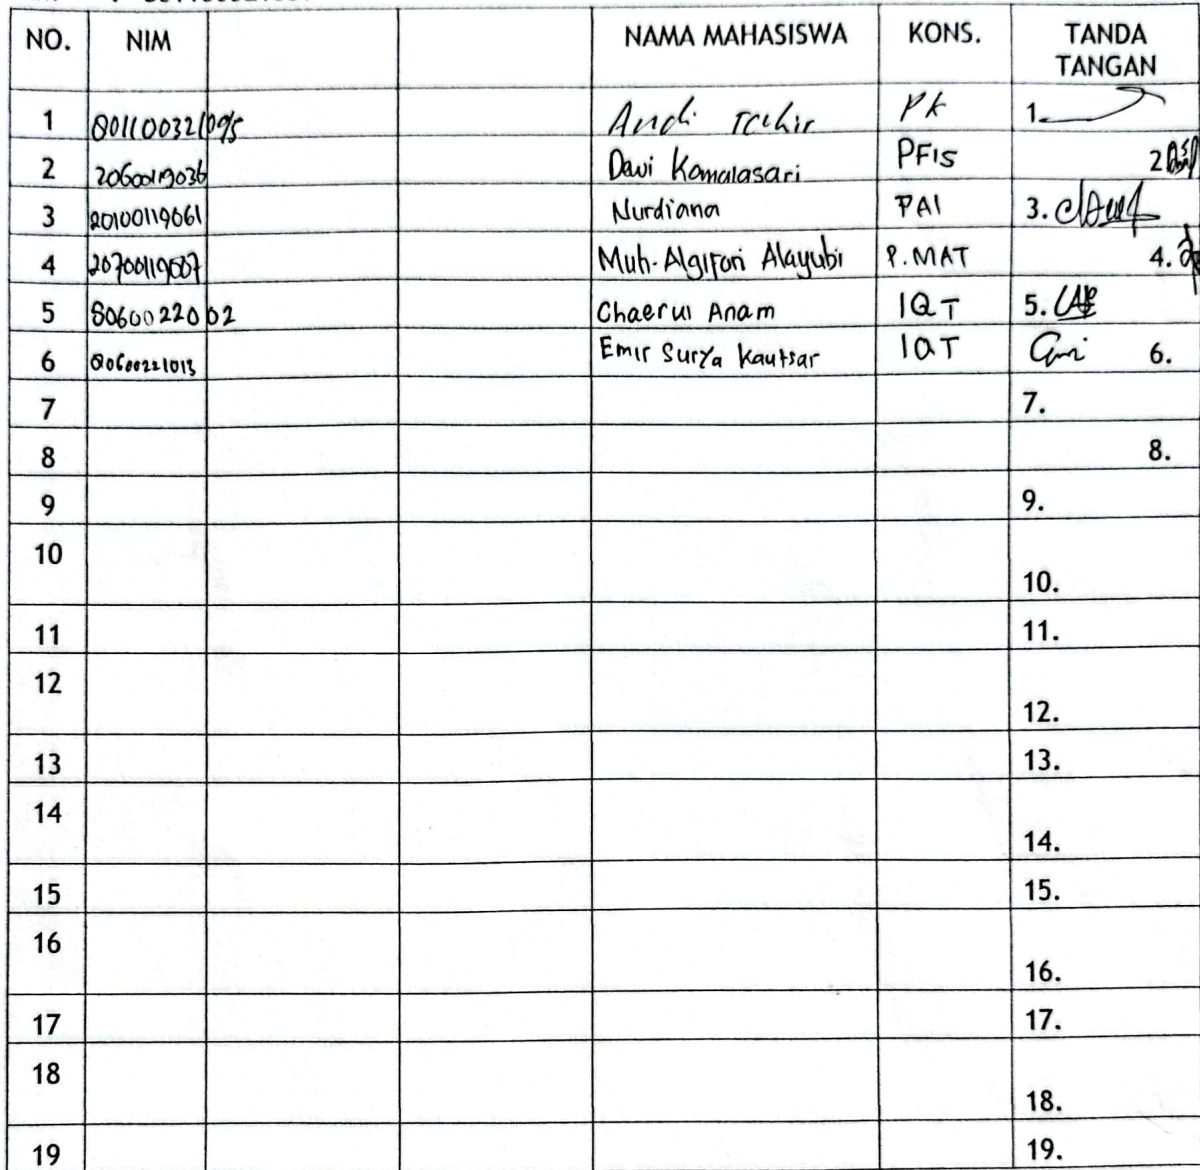 NO. NIM NAMA MAHASISWA KONS. TANDA TANGAN
1 Andi Tahir PK 1.
2 20600119036 Dewi Komalasari PFIS 2
3 20100119061 Nurdiana PAI 3.
4 20700119087 Muh. Algifari Alayubi P.MAT 4.
5 8060022002 Chaerul Anam IQT 5.
6 80600221013 Emir Surya Kautsar IQT 6.
7 7.
8 8.
9 9.
10 10.
11 11.
12 12.
13 13.
14 14.
15 15.
16 16.
17 17.
18 18.
19 19.